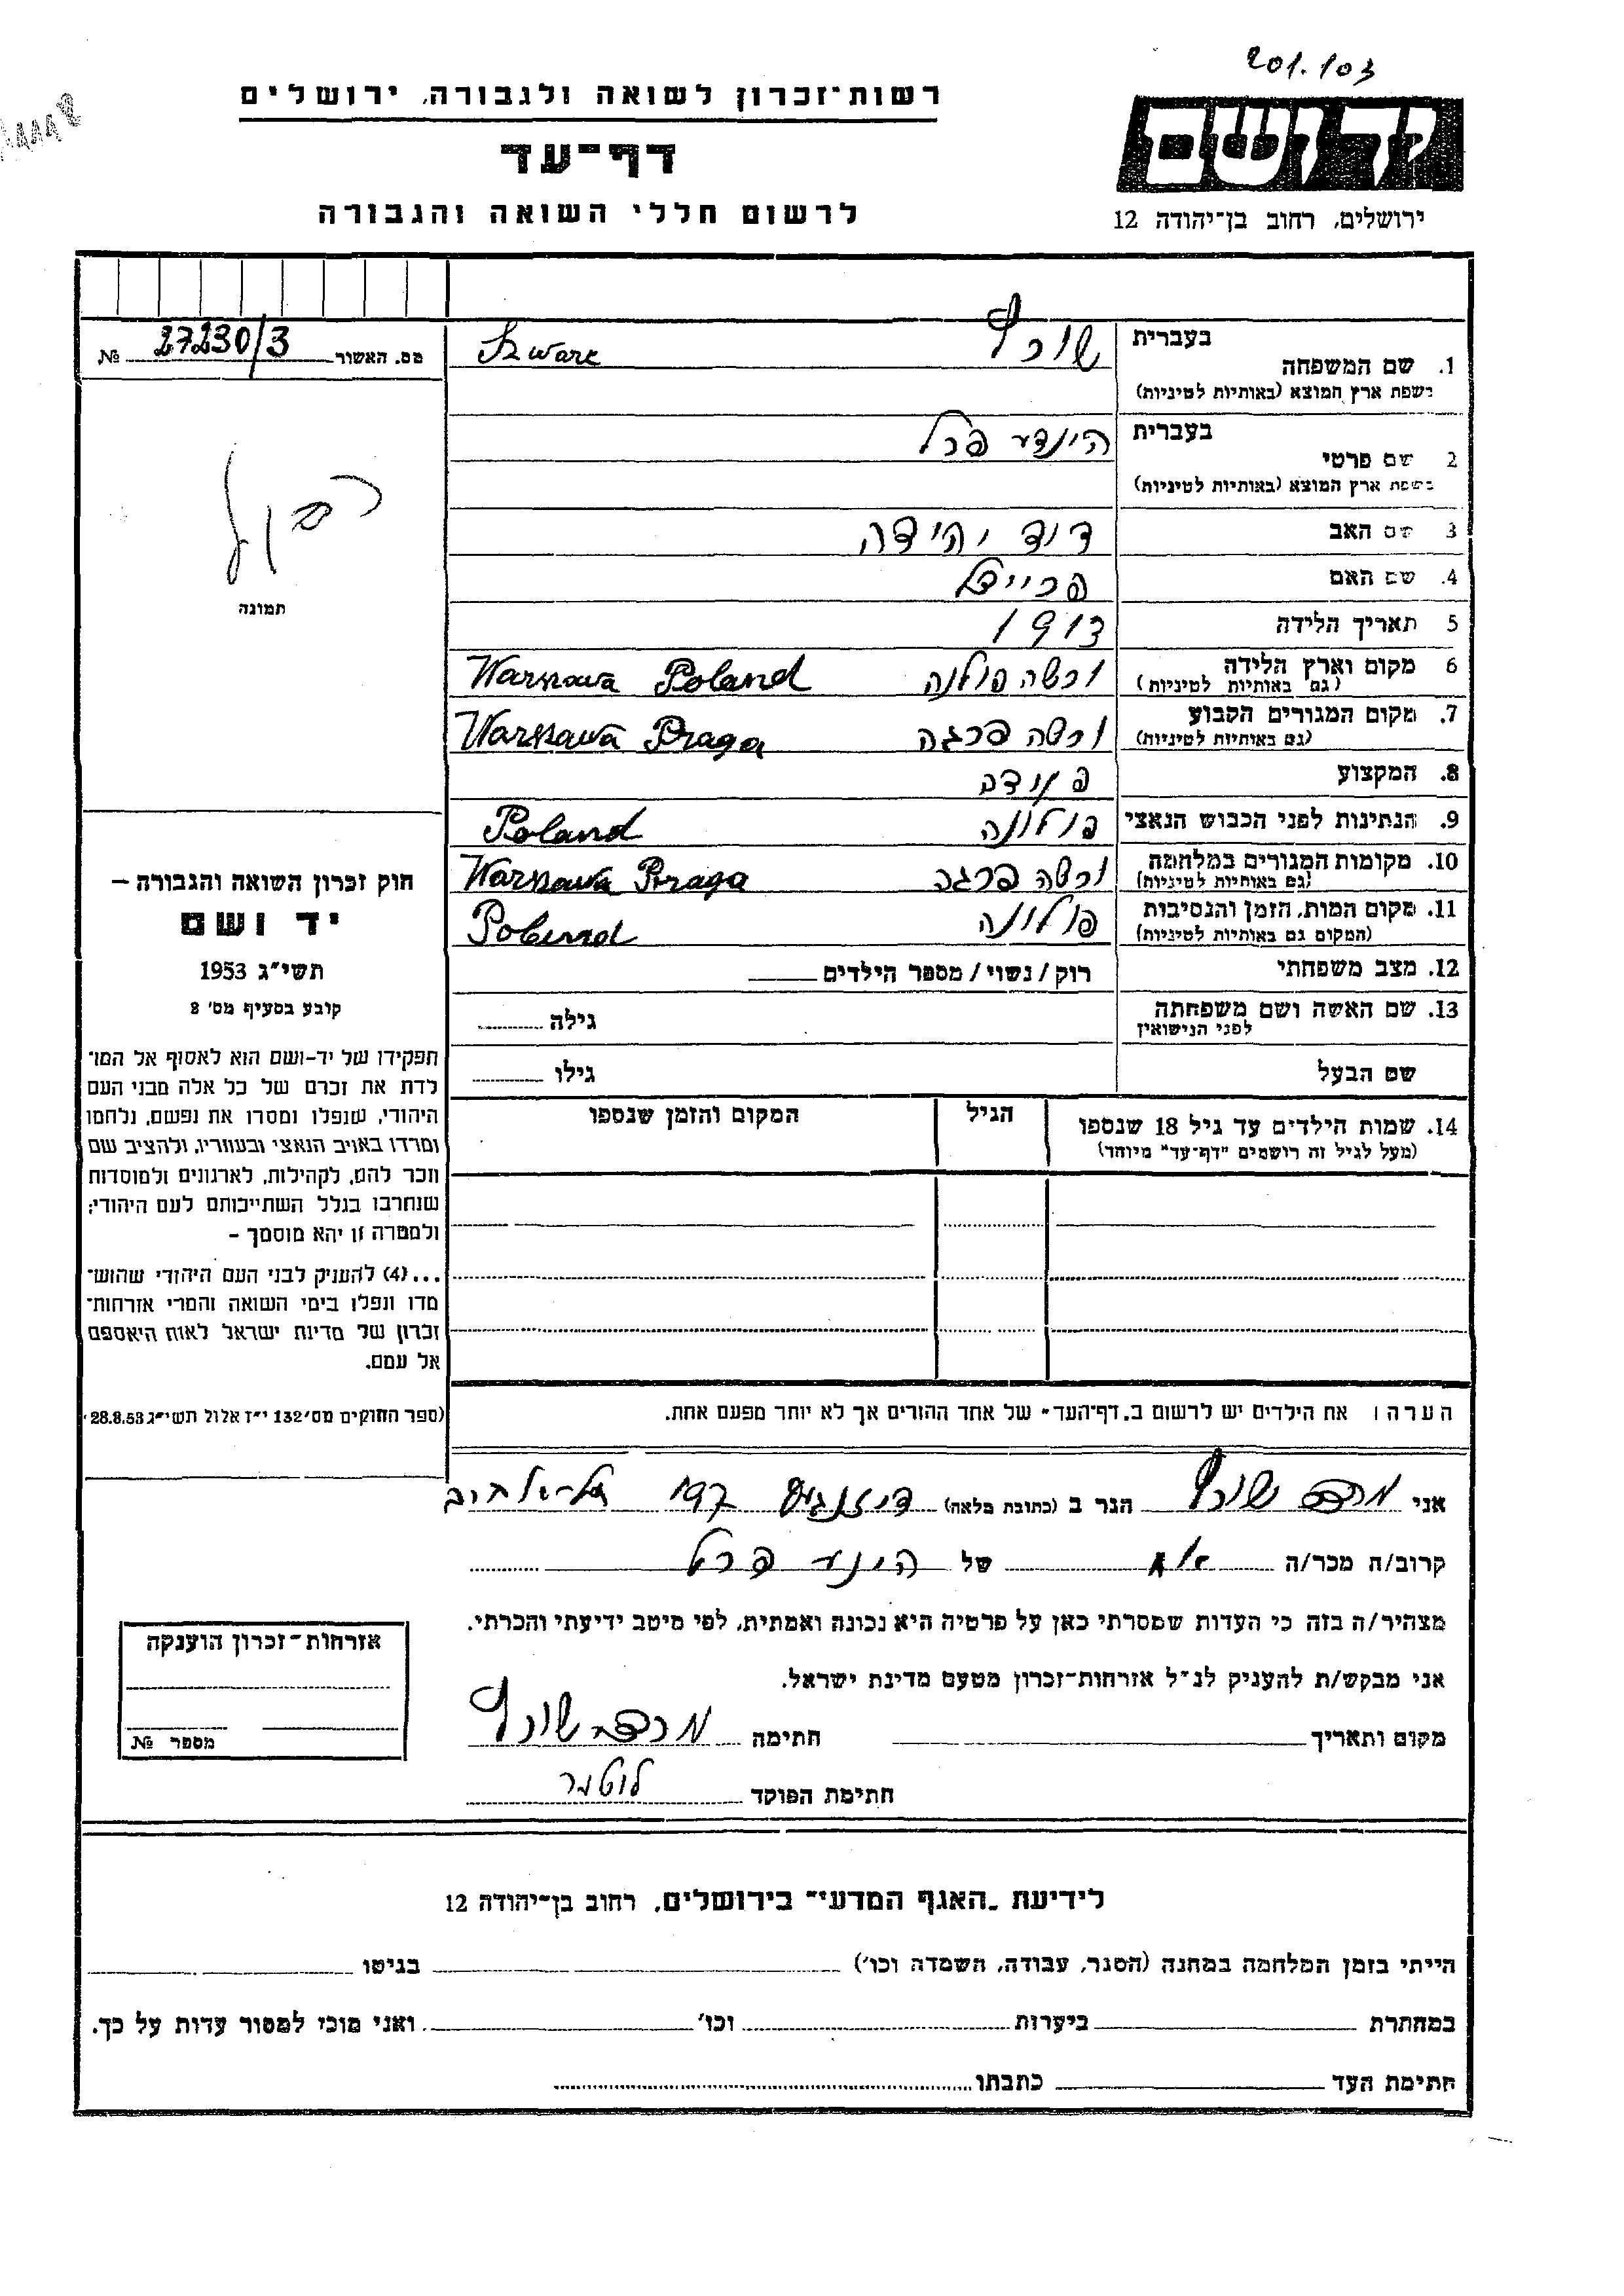 201.103
רשות-זכרון לשואה ולגבורה, ירושלים
דף-עד
לרשום חללי השואה והגבורה
יד ושם
ירושלים, רחוב בן-יהודה 12
מס. האשור 27230/3 №
תמונה
חוק זכרון השואה והגבורה –
יד ושם
תשי"ג 1953
קובע בסעיף מס' 2
תפקידו של יד-ושם הוא לאסוף אל המו-
לדת את זכרם של כל אלה מבני העם
היהודי, שנפלו ומסרו את נפשם, נלחמו
ומרדו באויב הנאצי ובעוזריו, ולהציב שם
וזכר להם, לקהילות, לארגונים ולמוסדות
שנחרבו בגלל השתייכותם לעם היהודי;
ולמטרה זו יהא מוסמך –
...(4) להעניק לבני העם היהודי שהוש-
מדו ונפלו בימי השואה והמרי אזרחות-
זכרון של מדינת ישראל לאות היאספם
אל עמם.
(ספר החוקים מס' 132 י"ז אלול תשי"ג 28.8.53)
בעברית
1. שם המשפחה שורץ Szwarc
בשפת ארץ המוצא (באותיות לטיניות)
בעברית
2 שם פרטי הינדע פרל
בשפת ארץ המוצא (באותיות לטיניות)
3 שם האב דוד יהידה
4. שם האם פריידל
5 תאריך הלידה 1913
6 מקום וארץ הלידה ורשה פולנה Warszawa Poland
(גם באותיות לטיניות)
7. מקום המגורים הקבוע ורשה פרגה Warszawa Praga
(גם באותיות לטיניות)
8. המקצוע
9. הנתינות לפני הכבוש הנאצי פולונה Poland
10. מקומות המגורים במלחמה ורשה פרגה Warszawa Praga
(גם באותיות לטיניות)
11. מקום המות, הזמן והנסיבות פולונה Poland
(המקום גם באותיות לטיניות)
12. מצב משפחתי רוק/נשוי/מספר הילדים
13. שם האשה ושם משפחתה גילה
לפני הנישואין
שם הבעל גילו
14. שמות הילדים עד גיל 18 שנספו הגיל המקום והזמן שנספו
(מעל לגיל זה רושמים "דף-עד" מיוחד)
הערה: את הילדים יש לרשום ב"דף-העד" של אחד ההורים אך לא יותר מפעם אחת.
אני שורץ הגר ב (כתובת מלאה) דיזנגוף 197 תל-אביב
קרוב/ה מכר/ה אח של הינדע פרל
מצהיר/ה בזה כי העדות שמסרתי כאן על פרטיה היא נכונה ואמתית, לפי מיטב ידיעתי והכרתי.
אני מבקש/ת להעניק לנ"ל אזרחות-זכרון מטעם מדינת ישראל.
מקום ותאריך חתימה שורץ
חתימת הפוקד
אזרחות-זכרון הוענקה
מספר №
לידיעת "האגף המדעי" בירושלים, רחוב בן-יהודה 12
הייתי בזמן המלחמה במחנה (הסגר, עבודה, השמדה וכו') בגיטו
במחתרת ביערות וכו' ואני מוכן למסור עדות על כך.
חתימת העד כתבתו